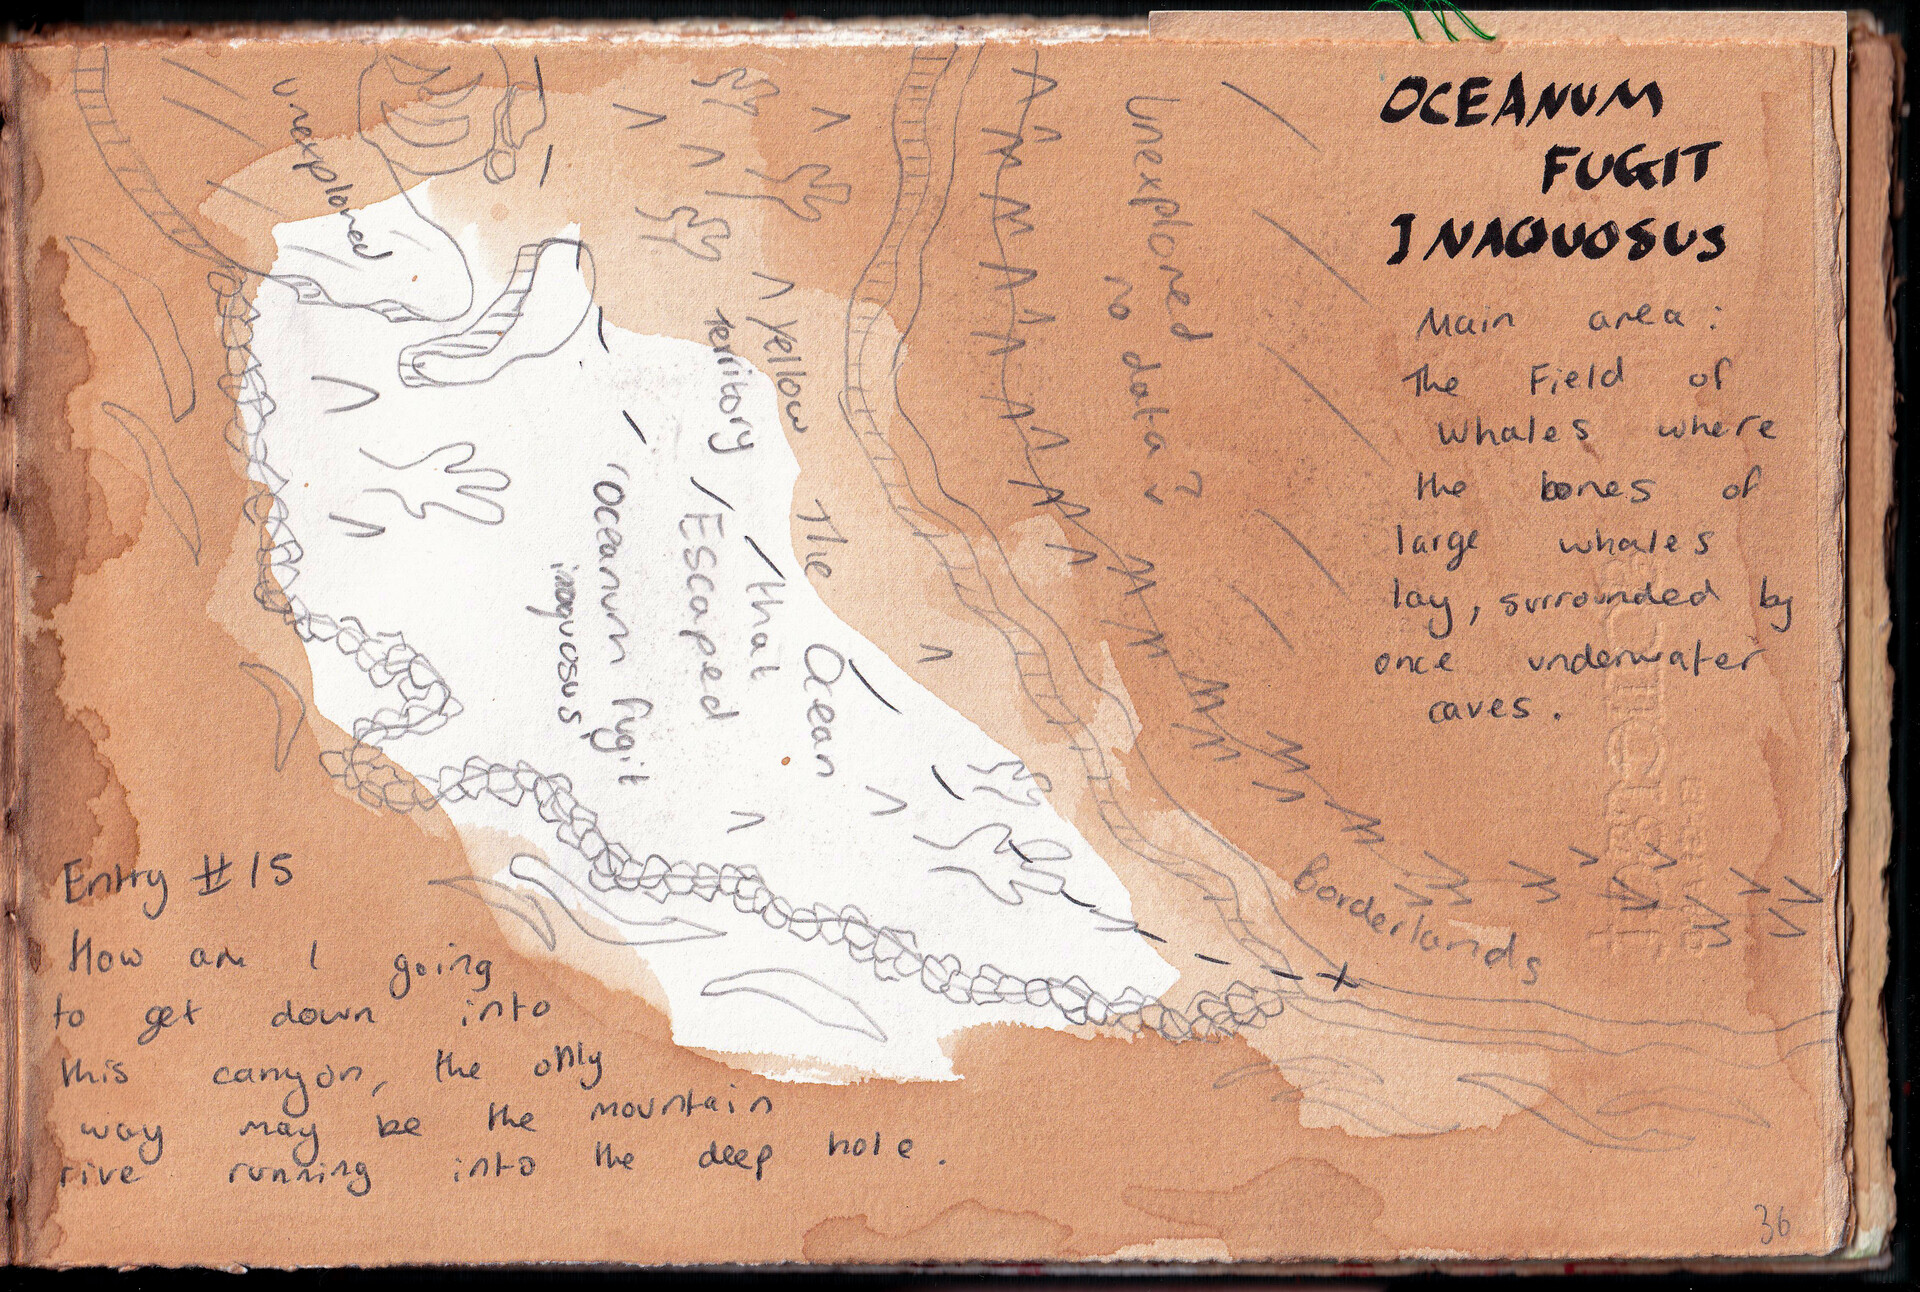 OCEANUM
FUGIT
INAQUOSUS
Main area:
The Field of
Whales where
the bones of
large whales
lay, surrounded by
once underwater
caves.
unexplored
Yellow
territory
Unexplored
no data?
The Ocean
that
Escaped
'Oceanum fugit
inaquosus'
Borderlands
Entry #15
How am I going
to get down into
this canyon, the only
way may be the mountain
rive running into the deep hole.
36